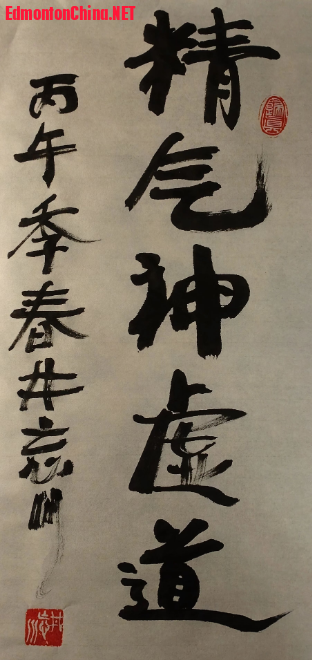 EdmontonChina.NET
精气神虚道
丙午季春井忘川